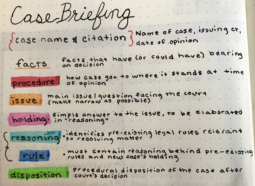 Case Briefing
{case name & citation} Name of case, issuing ct,
date of opinion
facts Facts that have (or could have) bearing
on decision
procedure how case got to where it stands at time
of opinion
issue main issue/question facing the court
(make narrow as possible)
holding Simple answer to the issue, to be elaborated
in "reasoning"
reasoning - identifies pre-existing legal rules relevant
to resolving matter
rule - must contain reasoning behind pre-existing
rules and new case's holding
disposition procedural disposition of the case after
court's decision